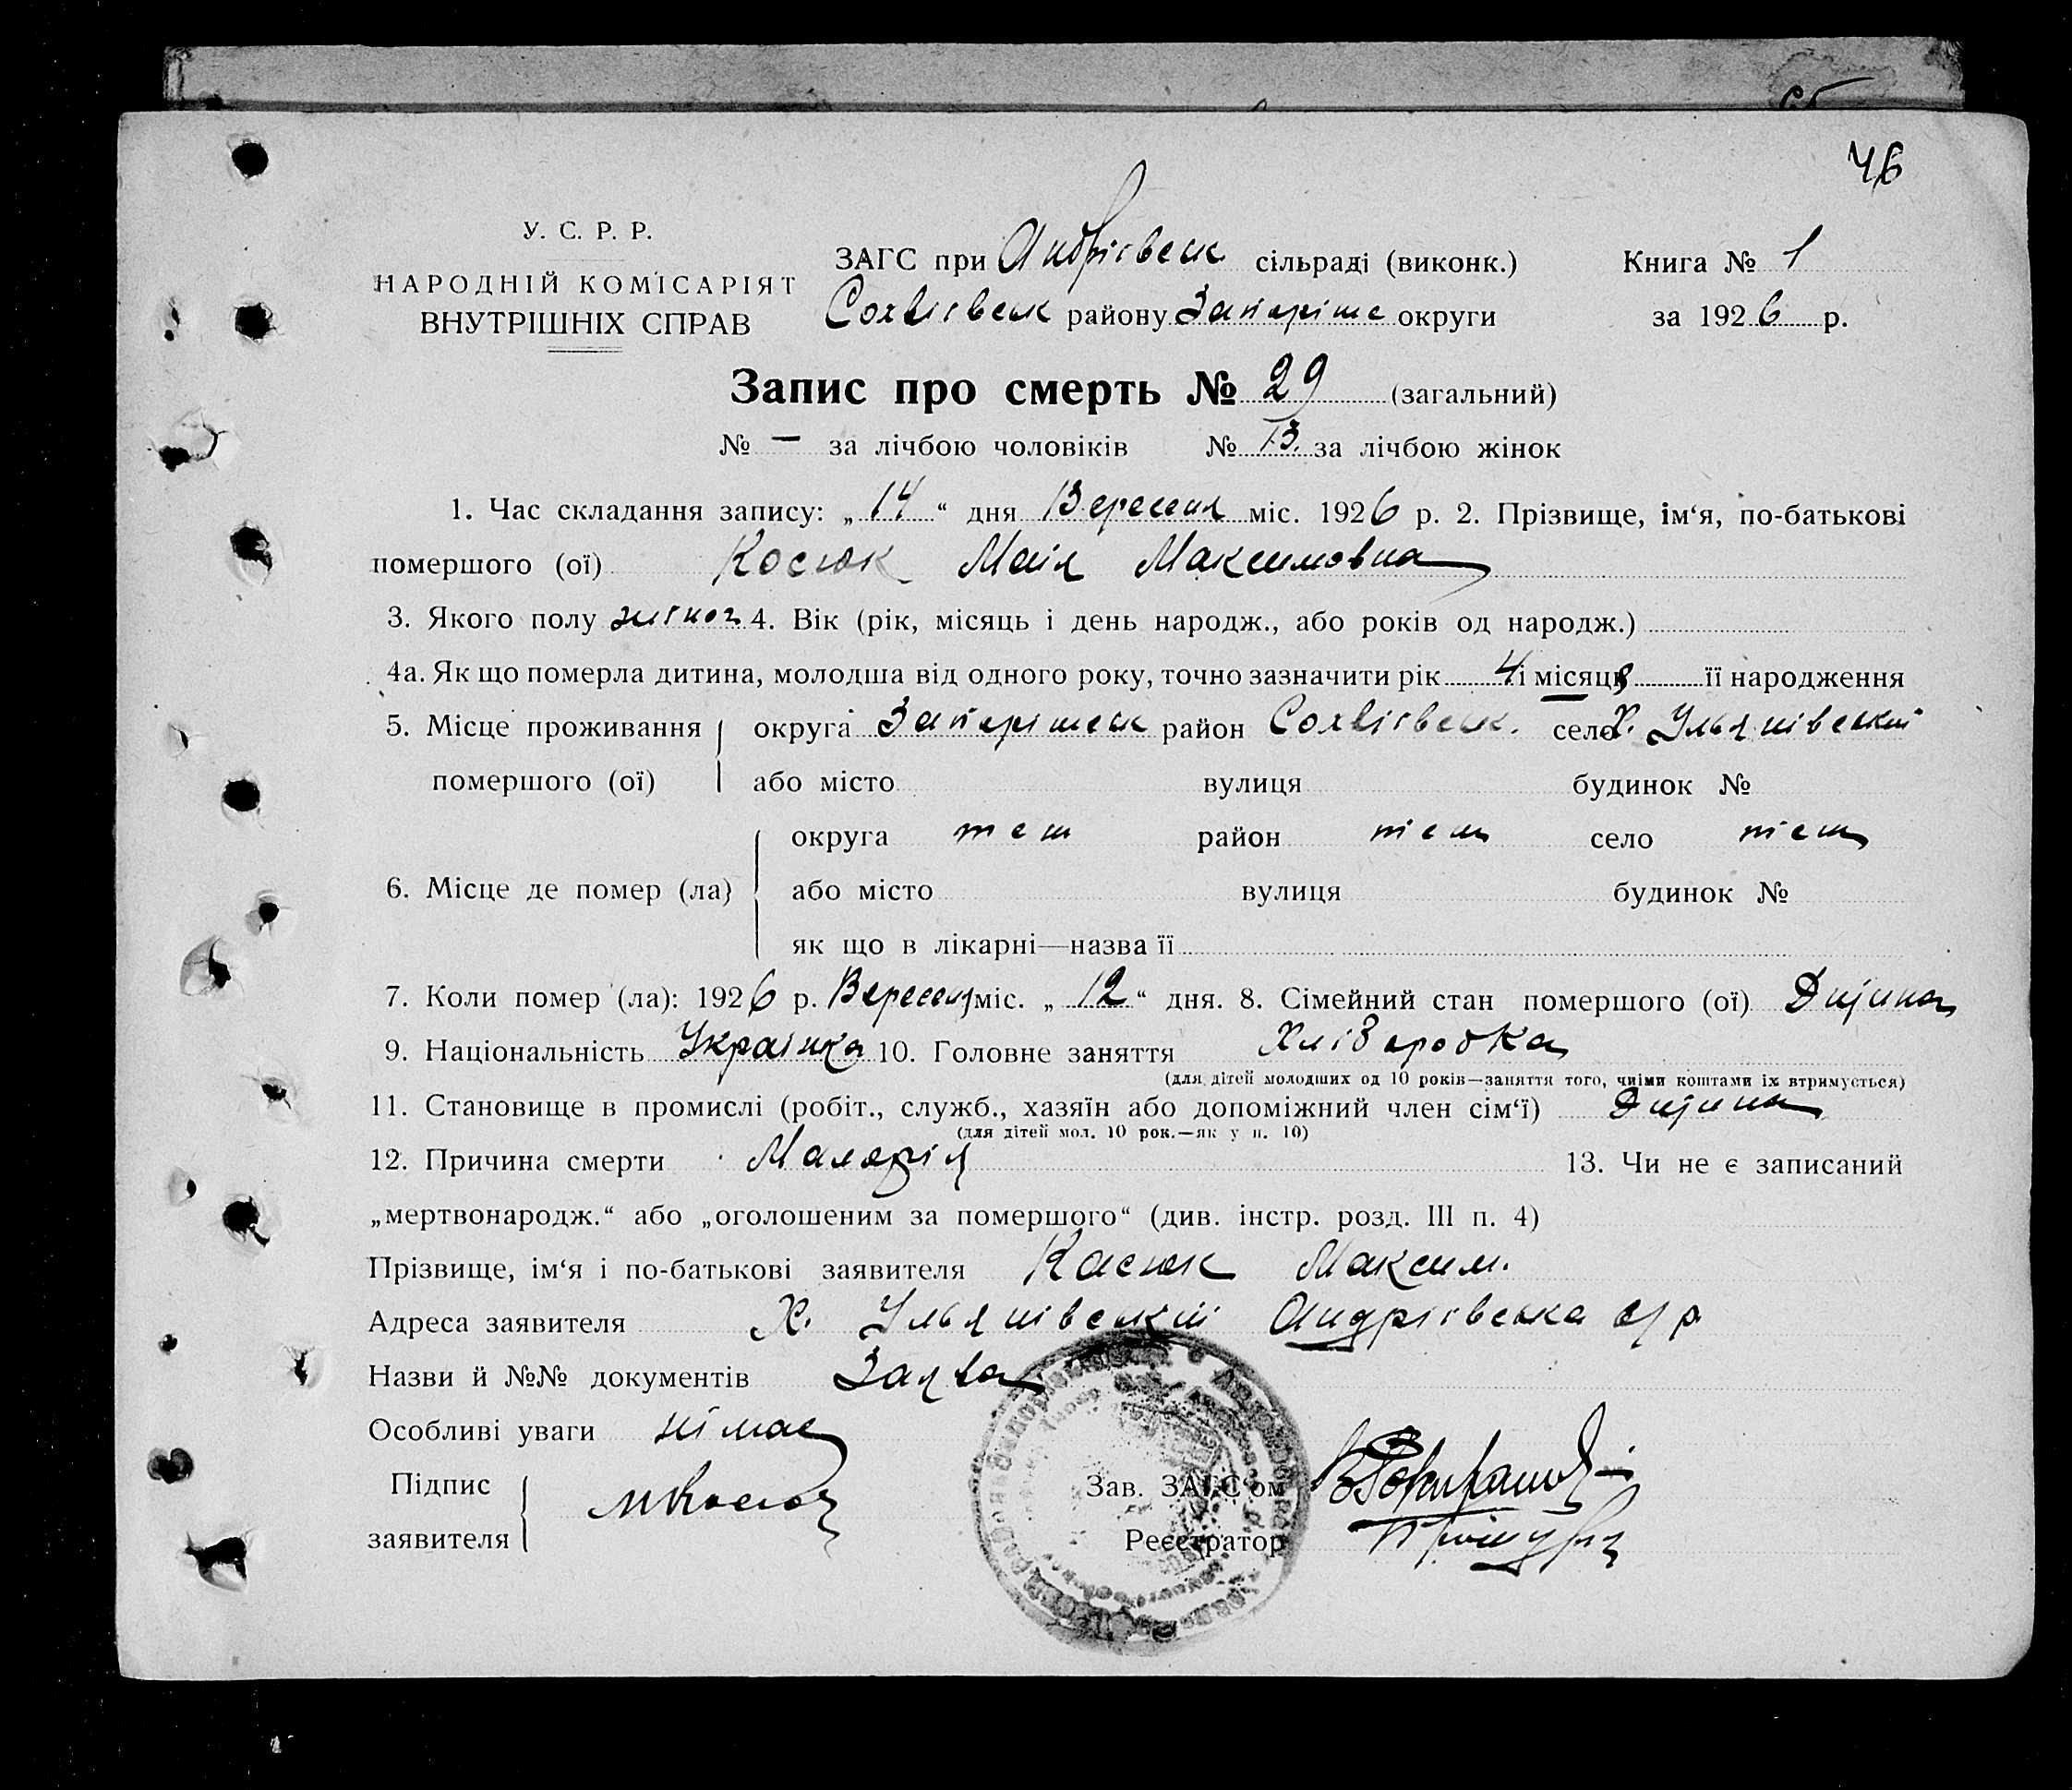 46
У. С. Р. Р.
НАРОДНІЙ КОМІСАРІЯТ
ВНУТРІШНІХ СПРАВ
ЗАГС при Андрієвськ сільраді (виконк.)
Софієвськ району Запоріш округи
Книга № 1
за 1926 р.
Запис про смерть № 29 (загальний)
№ — за лічбою чоловіків № 13. за лічбою жінок
1. Час складання запису: „14“ дня Вересня міс. 1926 р. 2. Прізвище, ім‘я, по-батькові
помершого (ої) Косюк Маія Максимовна
3. Якого полу жіноч 4. Вік (рік, місяць і день народж., або років од народж.)
4а. Як що померла дитина, молодша від одного року, точно зазначити рік 4 і місяця її народження
5. Місце проживання округа Запорішськ район Софієвськ. село Х. Ульянівський
помершого (ої) або місто вулиця будинок №
округа теш район теш село теш
6. Місце де помер (ла) або місто вулиця будинок №
як що в лікарні—назва її
7. Коли помер (ла): 1926 р. Вересня міс. „12“ дня. 8. Сімейний стан помершого (ої) Дитина
9. Національність Українка 10. Головне заняття Хліборобка
(для дітей молодших од 10 років—заняття того, чиїми коштами їх втримується)
11. Становище в промислі (робіт., служб., хазяїн або допоміжний член сім‘ї) Дитина
(для дітей мол. 10 рок.—як у п. 10)
12. Причина смерти Малярія 13. Чи не є записаний
„мертвонародж.“ або „оголошеним за помершого“ (див. інстр. розд. III п. 4)
Прізвище, ім‘я і по-батькові заявителя Касюк Максим.
Адреса заявителя Х. Ульянівський Андрієвська с/р
Назви й №№ документів Заява
Особливі уваги німає
Підпис
заявителя МКосюк
Зав. ЗАГС‘ом
Реєстратор